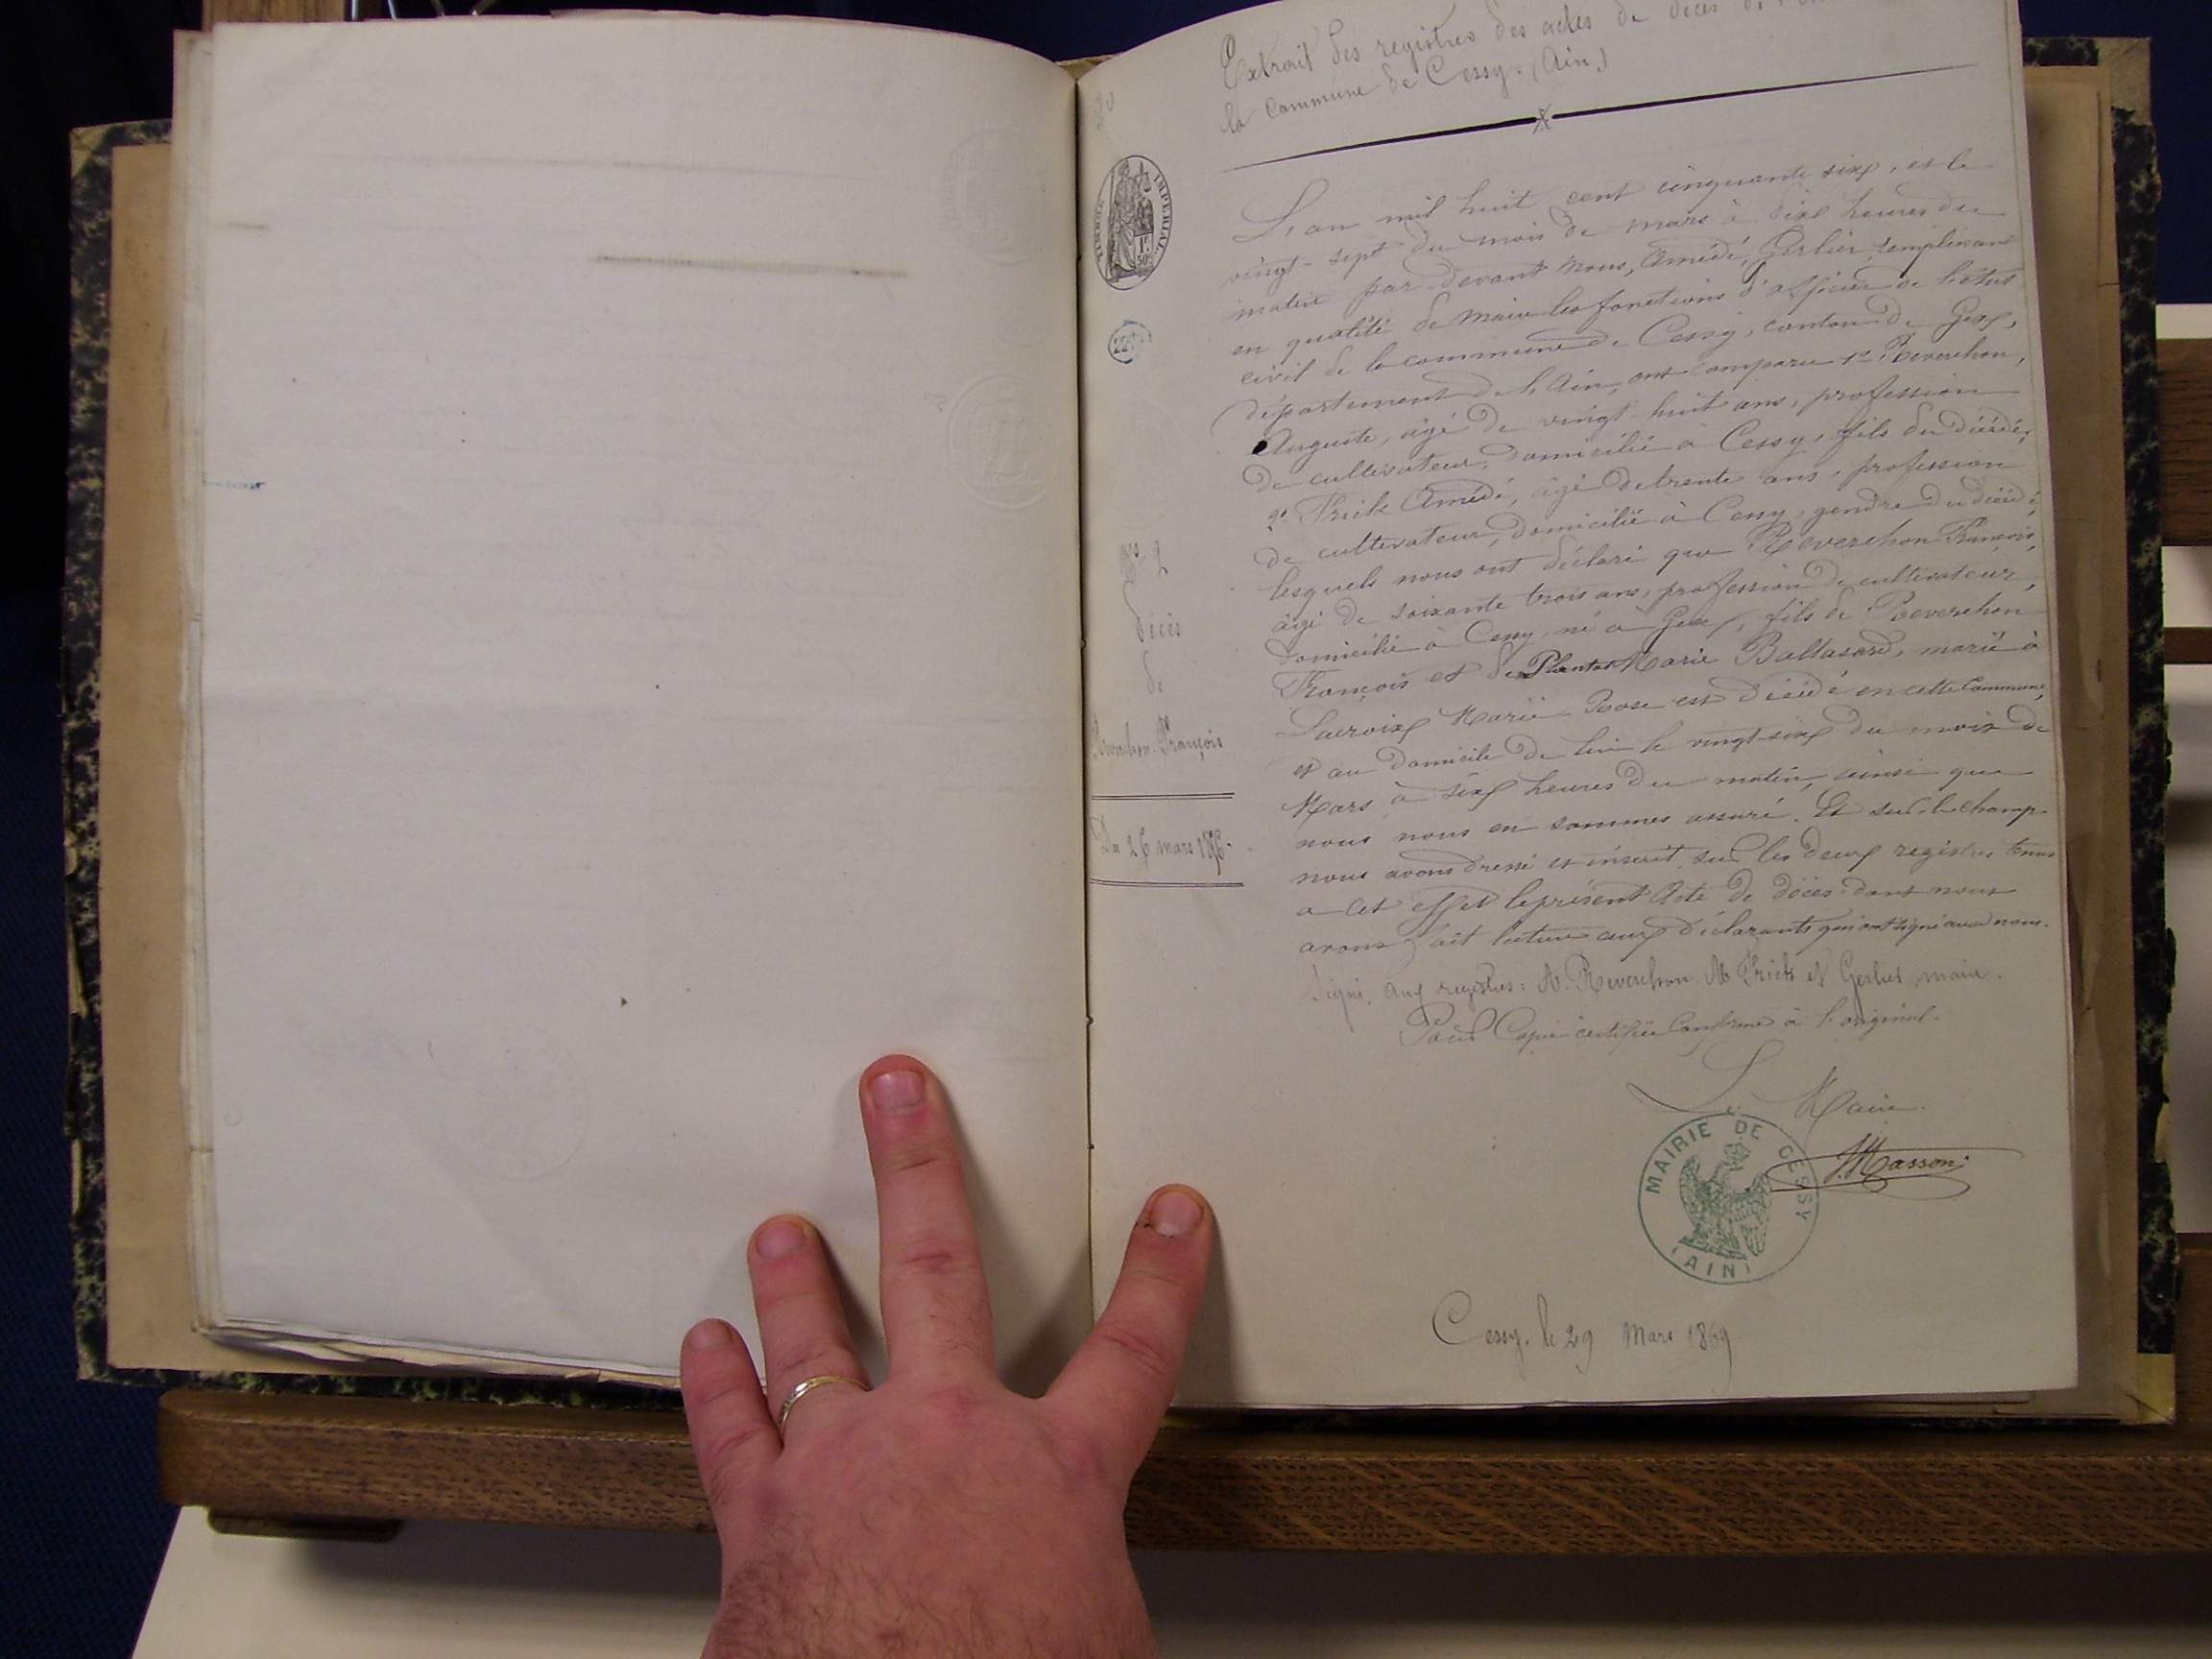 Extrait des registres des actes de décès de
la Commune de Cessy. (Ain.)
TIMBRE IMPERIAL
1F
50C
L'an mil huit cent cinquante six, et le
vingt-sept du mois de mars à dixe heures du
matin par devant nous, Amédé, Gerlier, remplissant
en qualité de Maire les fonctions d'officier de l'état
civil de la commune de Cessy, canton de Gex,
département de l'Ain, ont comparu 1º Reverchon,
Auguste, âgé de vingt huit ans, profession
de cultivateur, domicilié à Cessy, fils du décédé,
2º Frick Amédé, âgé de trente ans, profession
de cultivateur, domicilié à Cessy, gendre du décédé,
lesquels nous ont déclaré que Reverchon François,
âgé de soixante trois ans, profession de cultivateur,
domicilié à Cessy, né à Gex, fils de Reverchon
François et de Marie Baltasard, marié à
Lacroix Marie Rose est décédé en cette Commune,
et au domicile de lui le vingt-six du mois de
Mars à six heures du matin, ainsi que
nous nous en sommes assuré. Et sur-le-champ
nous avons dressé et inscrit sur les deux registres tenus
a cet effet le présent Acte de décès dont nous
avons fait lecture aux déclarants qui ont signé avec nous.
Signé aux registres: A. Reverchon. Frick et Gerlier maire.
Pour Copie certifiée Conforme à l'original.
Le Maire
Masson
MAIRIE DE CESSY
(AIN)
Cessy, le 29 Mars 1869
Nº 2
décès
de
Reverchon François
Du 26 mars 1856